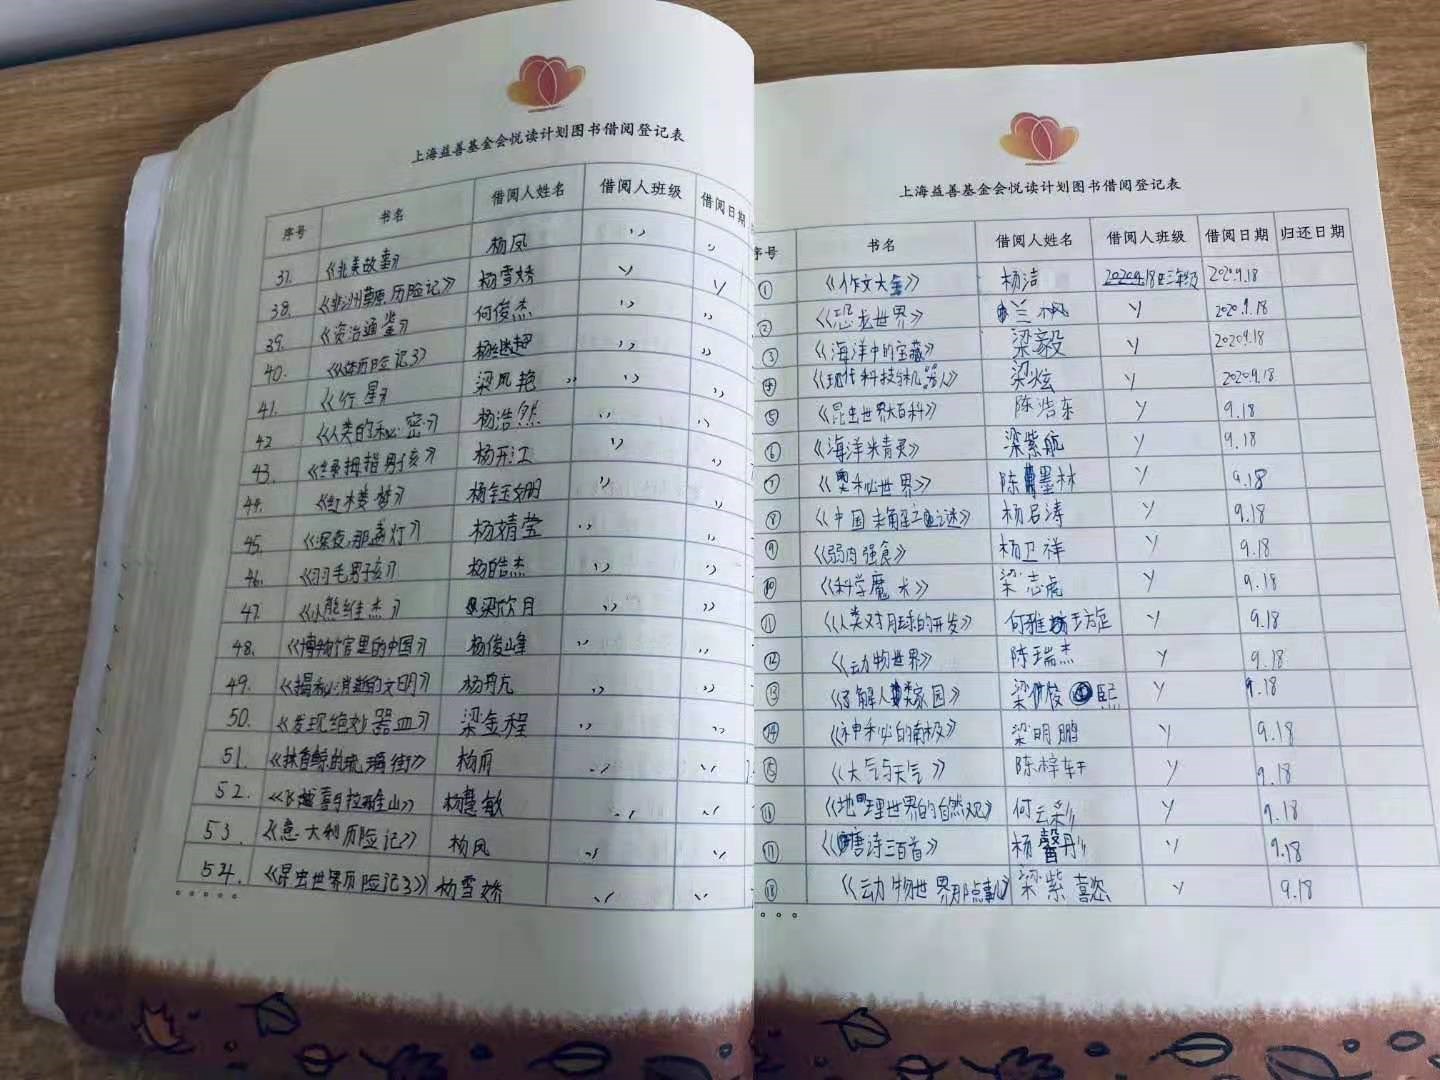 上海益善基金会悦读计划图书借阅登记表
序号 书名 借阅人姓名 借阅人班级 借阅日期
37. 《北美故事》 杨凤 ,,
38. 《非洲草原历险记》 杨雪娇
39. 《资治通鉴》 何俊杰
40. 历险记3》 杨超
41. 《行星》 梁凤艳
42 《人类的秘密》 杨浩然
43. 拇指男孩》 杨开江
44. 《红楼梦》 杨钰
45. 《深夜那盏灯》 杨婧莹
46. 《羽毛男孩》 杨皓杰
47. 《小熊维杰》 梁欣月
48. 《博物馆里的中国》 杨俊峰
49. 《揭秘消逝的文明》 杨丹
50. 《发现绝妙器皿》 梁金程
51. 《抹香鲸的琉璃街》 杨
52. 《飞越喜马拉雅山》 杨慧敏
53. 《意大利历险记2》 杨凤
54. 《昆虫世界历险记3》 杨雪娇
上海益善基金会悦读计划图书借阅登记表
序号 书名 借阅人姓名 借阅人班级 借阅日期 归还日期
① 《作文大全》 杨洁 三年级 2020.9.18
② 《恐龙世界》 兰枫 Y 2020.9.18
③ 《海洋中的宝藏》 梁毅 Y 2020.9.18
④ 《现代科技与机器人》 梁炫 Y 2020.9.18
⑤ 《昆虫世界大百科》 陈浩东 Y 9.18
⑥ 《海洋精灵》 梁紫航 Y 9.18
⑦ 《奥秘世界》 陈墨林 Y 9.18
⑧ 《中国未解之谜》 杨君涛 Y 9.18
⑨ 《弱肉强食》 杨卫祥 Y 9.18
⑩ 《科学魔术》 梁志虎 Y 9.18
⑪ 《人类对月球的开发》 何雅璇 Y 9.18
⑫ 《动物世界》 陈瑞杰 Y 9.18
⑬ 《了解人类家园》 梁俊熙 Y 9.18
⑭ 《神秘的南极》 梁明鹏 Y 9.18
⑮ 《大气与天气》 陈梓轩 Y 9.18
⑯ 《地理世界的自然观》 何云彩 Y 9.18
⑰ 《唐诗三百首》 杨馨丹 Y 9.18
⑱ 《动物世界那点事儿》 梁紫 Y 9.18